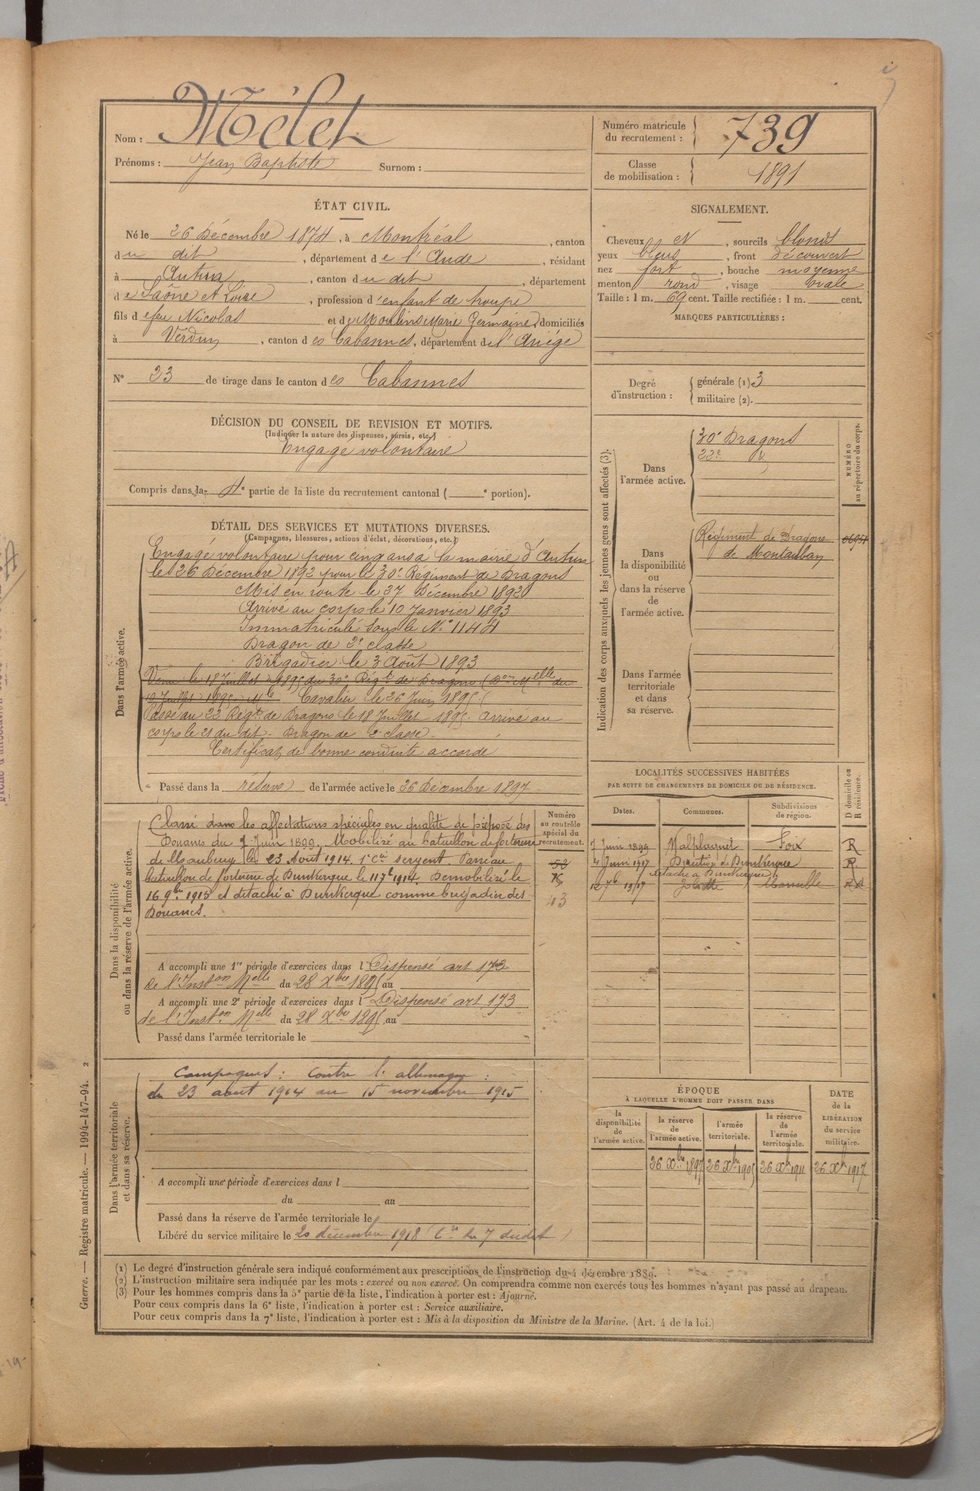 Nom : Mélet
Prénoms : Jean Baptiste Surnom :
Numéro matricule du recrutement : 739
Classe de mobilisation : 1891
ÉTAT CIVIL.
Né le 26 Décembre 1874, à Montréal, canton
du dit, département de l'Aude, résidant
à Autun, canton du dit, département
de Saône et Loire, profession d'enfant de troupe
fils de feu Nicolas et de Moulins Marie Germaine, domiciliés
à Verdun, canton des Cabannes, département de l'Ariège
N° 23 de tirage dans le canton des Cabannes
SIGNALEMENT.
Cheveux et, sourcils blonds
yeux bleus, front découvert
nez fort, bouche moyenne
menton rond, visage ovale
Taille : 1 m. 69 cent. Taille rectifiée : 1 m. cent.
MARQUES PARTICULIÈRES :
Degré d'instruction : générale (1) 3
militaire (2).
DÉCISION DU CONSEIL DE REVISION ET MOTIFS.
(Indiquer la nature des dispenses, sursis, etc.)
Engagé volontaire
Compris dans la 4e partie de la liste du recrutement cantonal ( e portion).
DÉTAIL DES SERVICES ET MUTATIONS DIVERSES.
(Campagnes, blessures, actions d'éclat, décorations, etc.)
Dans l'armée active.
Engagé volontaire pour cinq ans à la mairie d'Autun
le 26 Décembre 1892 pour le 30e Régiment de Dragons
Mis en route le 27 Décembre 1892
Arrivé au corps le 10 Janvier 1893
Immatriculé sous le N° 1144
Dragon de 2e classe
Brigadier le 3 Août 1893
Venu le 18 Juillet 1895 du 30e Régt de Dragons
Cavalier le 26 Juin 1895
Passé au 22 Régt de Dragons le 18 Juillet 1895 arrivé au
corps le 21 du dit. Dragon de 2e classe
Certificat de bonne conduite accordé
Passé dans la réserve de l'armée active le 26 Décembre 1897
Indication des corps auxquels les jeunes gens sont affectés (3).
NUMÉRO au répertoire du corps.
Dans l'armée active.
30e Dragons
22e
Dans la disponibilité ou dans la réserve de l'armée active.
Régiment de Dragons
de Montauban
Dans l'armée territoriale et dans sa réserve.
Dans la disponibilité ou dans la réserve de l'armée active.
Numéro au contrôle spécial du recrutement.
Classé dans les affectations spéciales en qualité de préposé des
Douanes du 7 Juin 1899. Mobilisé au bataillon de forteresse
de Maubeuge le 23 Août 1914. 1e Cie sergent. Passé au
bataillon de forteresse de Dunkerque le Démobilisé le
16 9bre 1915 et détaché à Dunkerque comme brigadier des
Douanes.
43
A accompli une 1re période d'exercices dans l Dispensé art 173
de l'Inston Melle du 28 Xbre 1895 au
A accompli une 2e période d'exercices dans l Dispensé art 173
de l'Inston Melle du 28 Xbre 1895 au
Passé dans l'armée territoriale le
LOCALITÉS SUCCESSIVES HABITÉES
PAR SUITE DE CHANGEMENTS DE DOMICILE OU DE RÉSIDENCE.
Dates. Communes. Subdivisions de région. D domicile ou R résidence.
7 Juin 1899 Malplaquet Foix R
4 Juin 1917 Dunkerque R
détaché à Dunkerque
Dans l'armée territoriale et dans sa réserve.
Campagnes : Contre l'allemagne :
du 23 août 1914 au 15 novembre 1915
A accompli une période d'exercices dans l
du au
Passé dans la réserve de l'armée territoriale le
Libéré du service militaire le 20 décembre 1918 (Cre du 7 dudit)
ÉPOQUE
À LAQUELLE L'HOMME DOIT PASSER DANS
la disponibilité de l'armée active. la réserve de l'armée active. l'armée territoriale. la réserve de l'armée territoriale. DATE de la LIBÉRATION du service militaire.
26 Xbre 1897 26 Xbre 1905 26 Xbre 1911 26 Xbre 1917
(1) Le degré d'instruction générale sera indiqué conformément aux prescriptions de l'instruction du 4 décembre 1889.
(2) L'instruction militaire sera indiquée par les mots : exercé ou non exercé. On comprendra comme non exercés tous les hommes n'ayant pas passé au drapeau.
(3) Pour les hommes compris dans la 5e partie de la liste, l'indication à porter est : Ajourné.
Pour ceux compris dans la 6e liste, l'indication à porter est : Service auxiliaire.
Pour ceux compris dans la 7e liste, l'indication à porter est : Mis à la disposition du Ministre de la Marine. (Art. 4 de la loi.)
Guerre. — Registre matricule. — 1994-147-94. 2